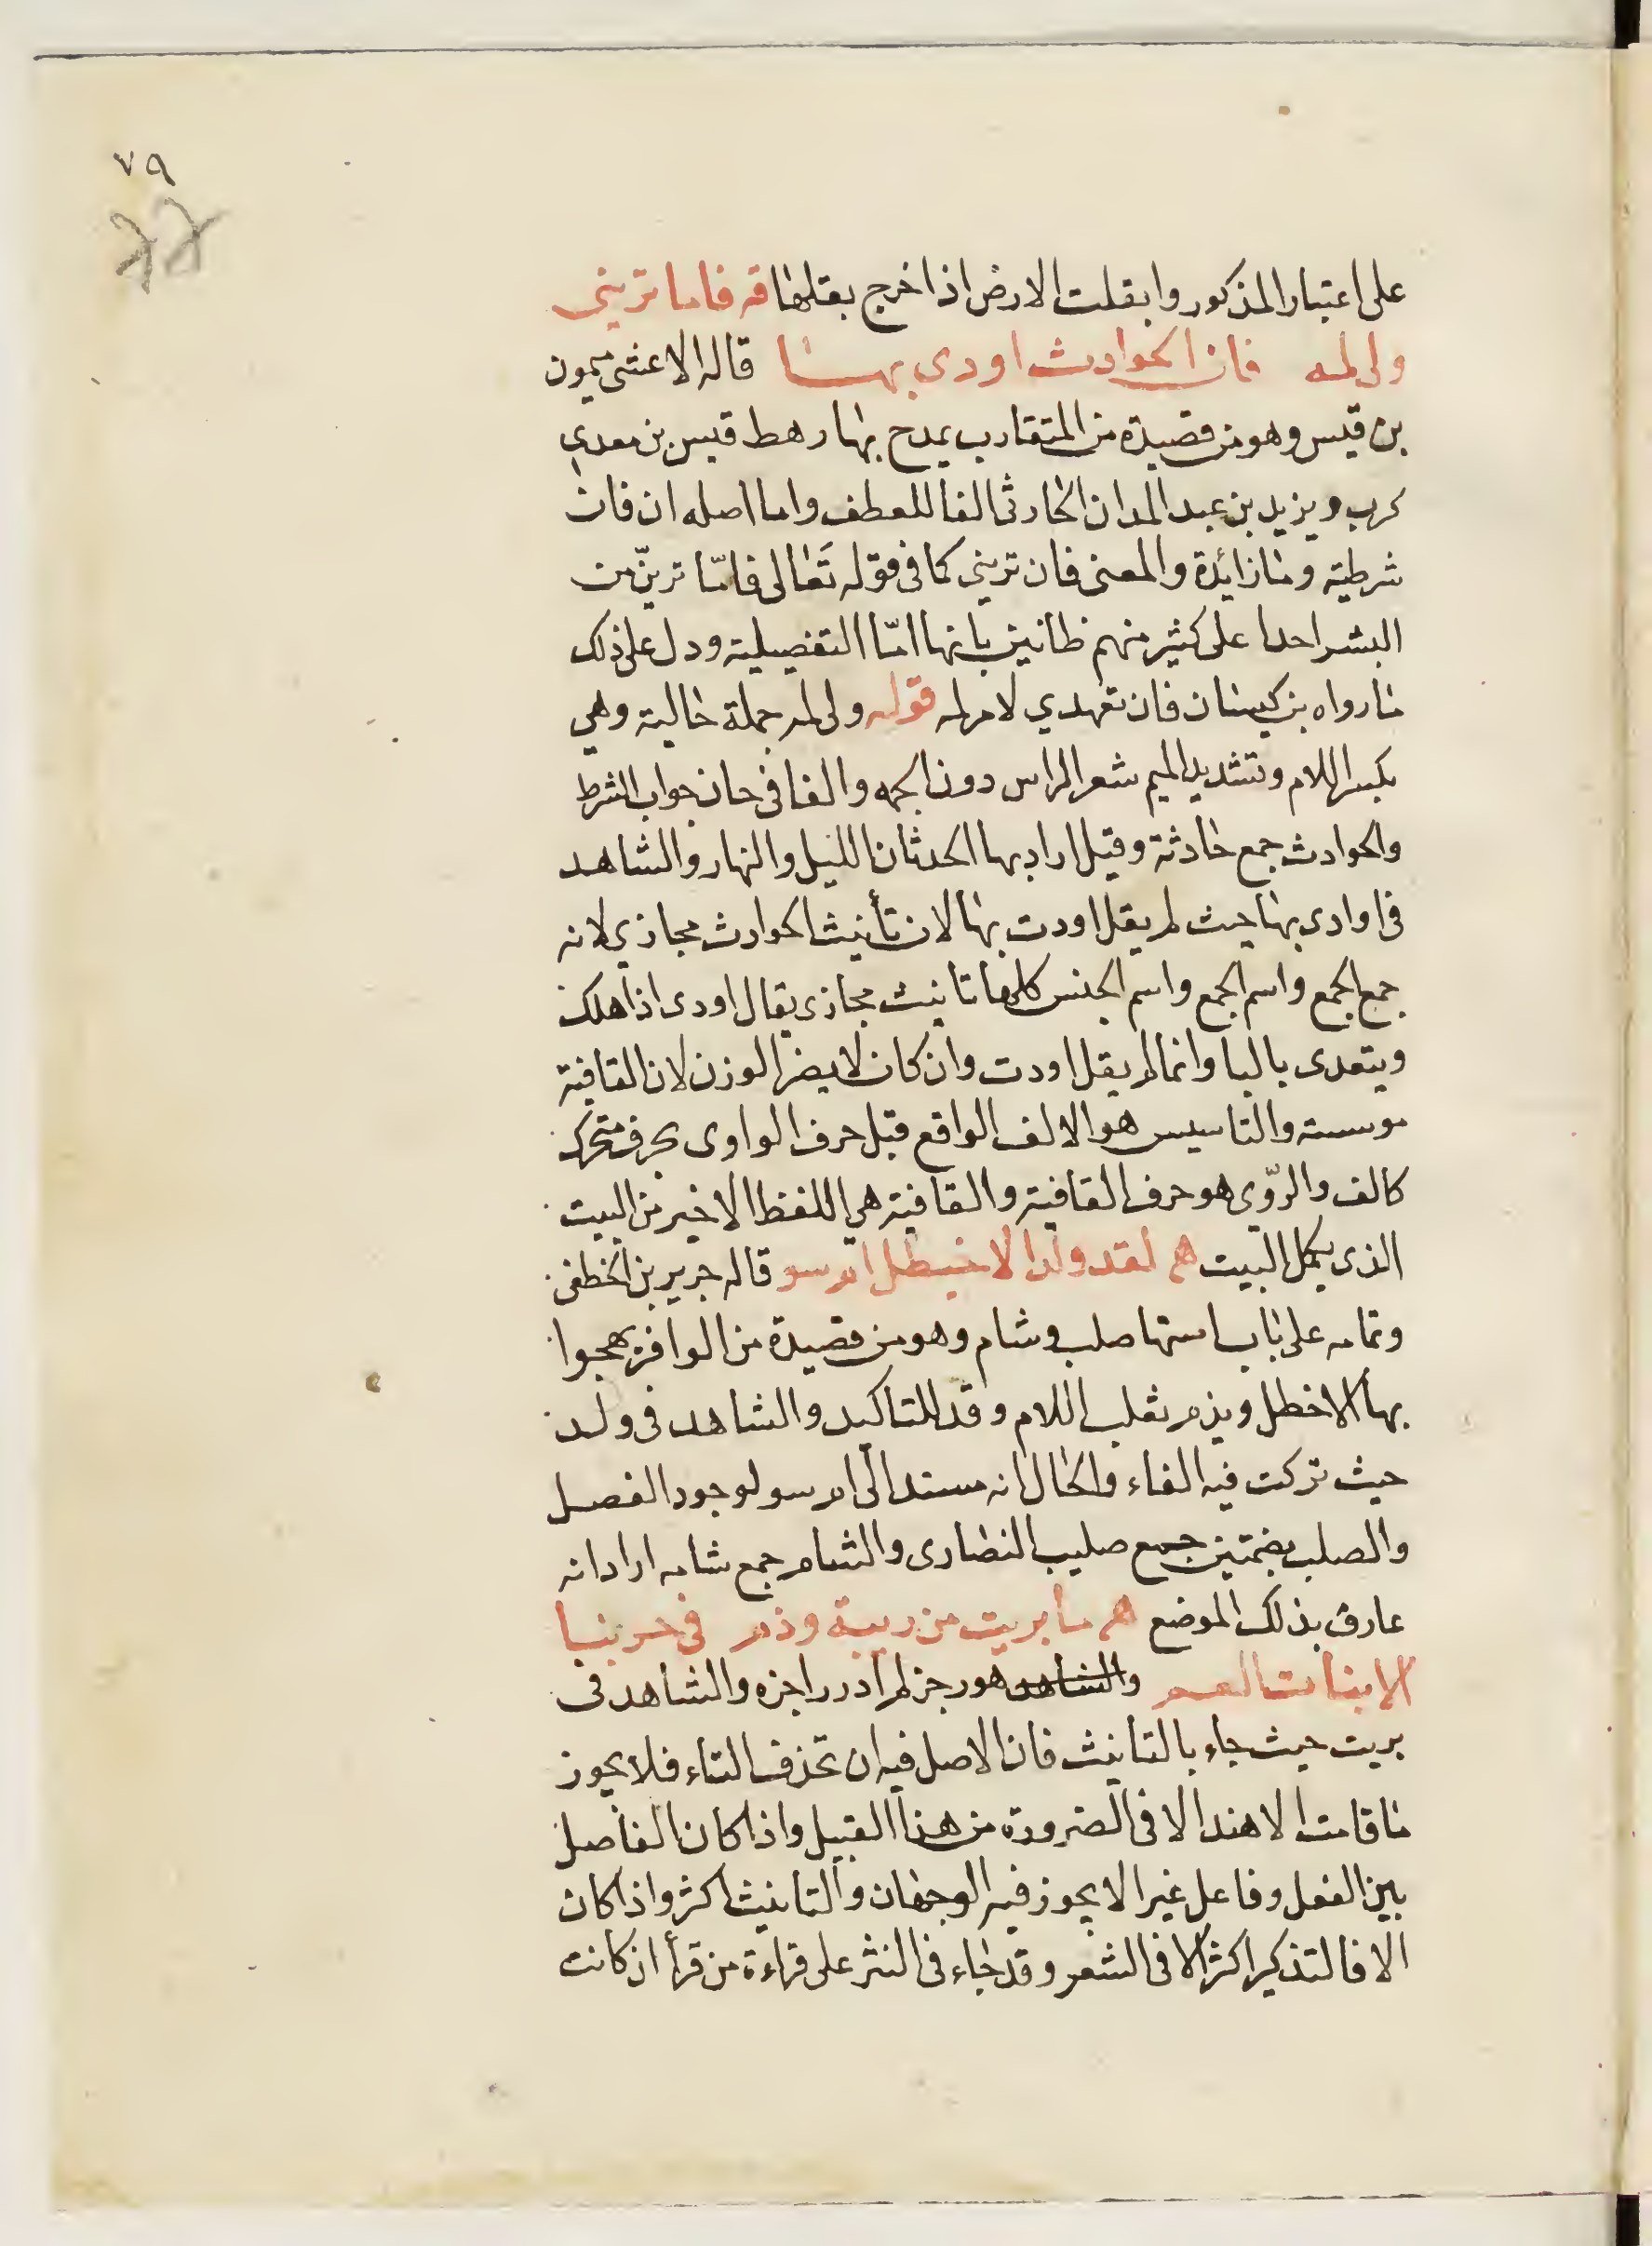 ٧٩
على اعتبار المذكور وابقلت الارض اذا خرج بقلها قه فاما تريني
ولى لمه فان الحوادث اودى بها قاله الاعشى ميمون
بن قيس وهو من قصيدة من المتقارب يمدح بها رهط قيس بن معدي
كرب ويزيد بن عبد المدان الحارثى الفا للعطف واما اصله ان فان
شرطية وما زائدة والمعنى فان تريني كما فى قوله تعالى فامّا ترينّ من
البشر احدا على كثير منهم ظانين بانها امّا التفصيلية ودل على ذلك
مارواه بن كيسان فان تعهدي لامر لمه قوله ولى لمه جملة حالية وهي
بكسر اللام وتشديد الميم شعر الراس دون الجمه والفا فى حان جواب الشرط
والحوادث جمع حادثة وقيل اراد بها الحدثان الليل والنهار والشاهد
فى اوادى بها حيث لم يقل اودت بها لان تأنيث الحوادث مجازي لانه
جمع الجمع واسم الجمع واسم الجنس كلها تانيث مجازى يقال اودى اذا هلك
ويتعدى بالبا وانما لم يقل اودت وان كان لا يضر الوزن لان القافية
موسسة والتاسيس هو الالف الواقع قبل حرف الواوى بحرف متحرك
كالف والروّى هو حرف القافية والقافية هي اللفظ الاخير من البيت
الذى يكمل البيت هم لقد ولد الاخيطل ام سو قاله جرير بن الخطفى
وتمامه على باب استها صلب وشام وهو من قصيدة من الوافر يهجوا
بها الاخطل ويذم ثعلب اللام وقد للتاكيد والشاهد فى ولد
حيث تركت فيه الفاء والحال انه مسند الى ام سو لوجود الفصل
والصلب بضمتين جمع صليب النصارى والشام جمع شامه اراد انه
عارف بذلك الموضع هم ما بريت من ريبة وذم فى حربنا
الا بنات العم والشاهد هو رجز لم ادر راجزه والشاهد فى
بريت حيث جاء بالتانيث فان الاصل فيه ان تحذف التاء فلا يجوز
ما قامت الا هند الا فى الضرورة من هذا القبيل واذا كان الفاصل
بين الفعل وفاعل غير الا يجوز فيه الوجهان والتانيث اكثر واذا كان
الا فالتذكير اكثر الا فى الشعر وقد جاء فى النثر على قراءة من قرأ ان كانت